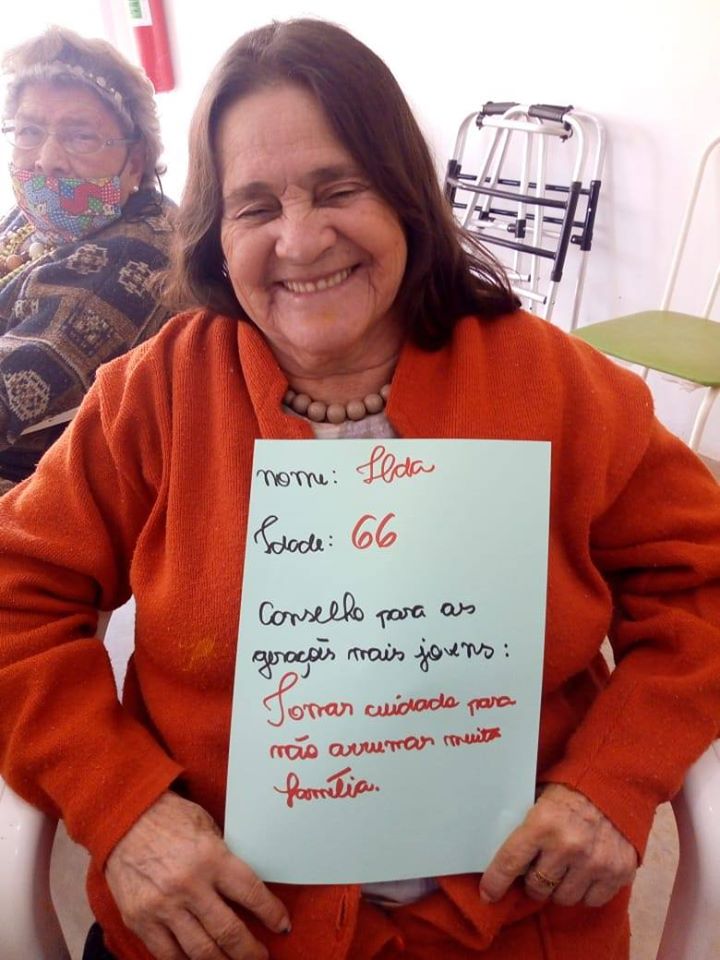 nome: Ilda
Idade: 66
Conselho para as
gerações mais jovens:
Tomar cuidado para
não arrumar muita
família.